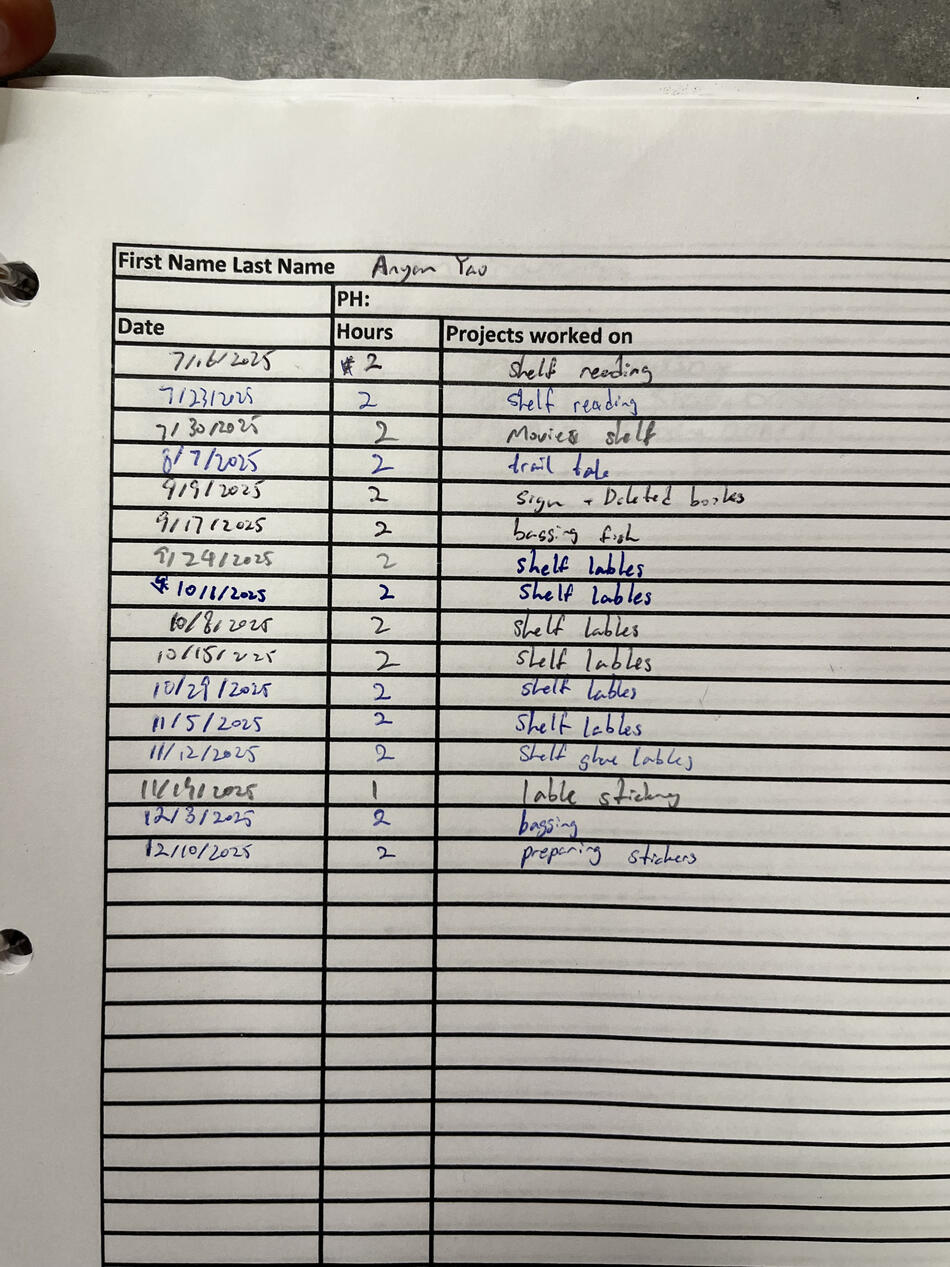 First Name Last Name Anyan Yao
PH:
Date Hours Projects worked on
7/16/2025 2 Shelf reading
7/23/2025 2 Shelf reading
7/30/2025 2 Movies shelf
8/7/2025 2 trail tale
9/9/2025 2 Sign + Deleted books
9/17/2025 2 bagging fish
9/24/2025 2 shelf lables
10/1/2025 2 Shelf lables
10/8/2025 2 Shelf lables
10/15/2025 2 Shelf lables
10/29/2025 2 Shelf lables
11/5/2025 2 Shelf lables
11/12/2025 2 Shelf glue lables
11/19/2025 1 lable sticking
12/3/2025 2 bagging
12/10/2025 2 preparing stickers